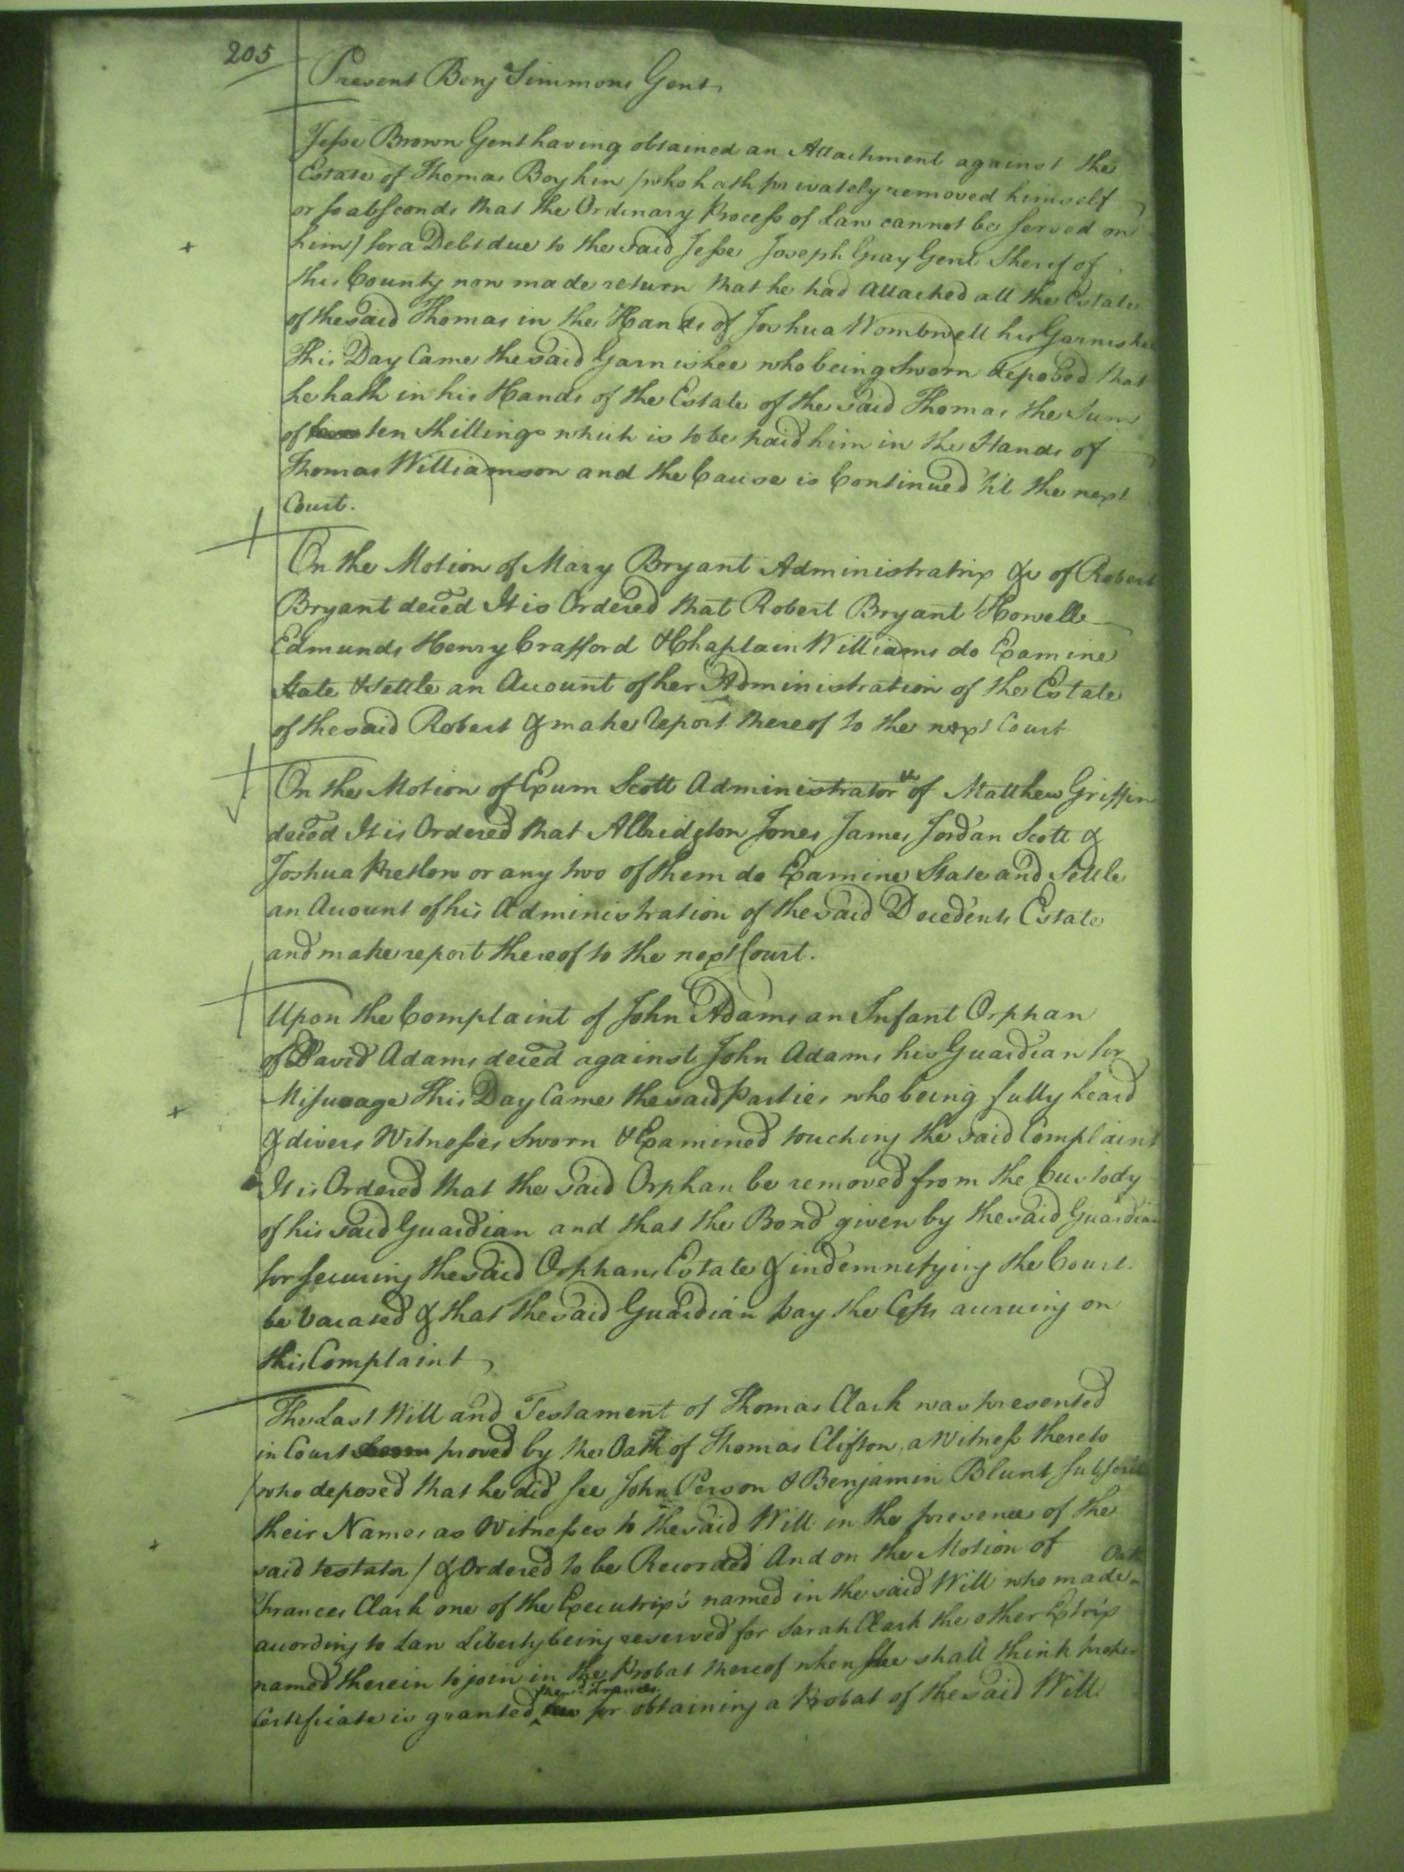 205
Present Benj Simmons Gent.
Jesse Brown Gent having obtained an Attachment against the
Estate of Thomas Boykin (who hath privately removed himself
or so absconds that the Ordinary Process of Law cannot be served on
him) for a Debt due to the said Jesse Joseph Gray Gent Sherif of
this County now made return that he had attached all the Estate
of the said Thomas in the Hands of Joshua Wombwell his Garnishee
This Day Came the said Garnishee who being Sworn deposed that
he hath in his Hands of the Estate of the said Thomas the Sum
of ten Shillings which is to be paid him in the Hands of
Thomas Williamson and the Cause is Continued 'til the next
Court.
On the Motion of Mary Bryant Administratrix &c of Robert
Bryant deced It is Ordered that Robert Bryant Howell
Edmunds Henry Crafford & Chaplain Williams do Examine
State & Settle an Account of her Administration of the Estate
of the said Robert & make report thereof to the next Court
On the Motion of Exum Scott Administrator &c of Matthew Griffin
deced It is Ordered that Albridgton Jones James Jordan Scott &
Joshua Pretlow or any two of them do Examine State and Settle
an Account of his Administration of the said Decedents Estate
and make report thereof to the next Court.
Upon the Complaint of John Adams an Infant Orphan
of David Adams deced against John Adams his Guardian for
Misusage This Day Came the said Parties who being fully heard
& divers Witnesses Sworn & Examined touching the said Complaint
It is Ordered that the said Orphan be removed from the Custody
of his said Guardian and that the Bond given by the said Guardian
for securing the said Orphans Estate & indemnifying the Court
be vacated & that the said Guardian pay the Costs accruing on
this Complaint
The Last Will and Testament of Thomas Clark was presented
in Court proved by the Oath of Thomas Clifton a Witness thereto
(who deposed that he did see John Person & Benjamin Blunt subscribe
their Names as Witnesses to the said Will in the presence of the
said testator) & Ordered to be Recorded And on the Motion of
Frances Clark one of the Executrix's named in the said Will who made Oath
according to Law Liberty being reserved for Sarah Clark the other Extrix
named therein to join in the Probat thereof when she shall think proper
Certificate is granted the sd. Frances for obtaining a Probat of the said Will